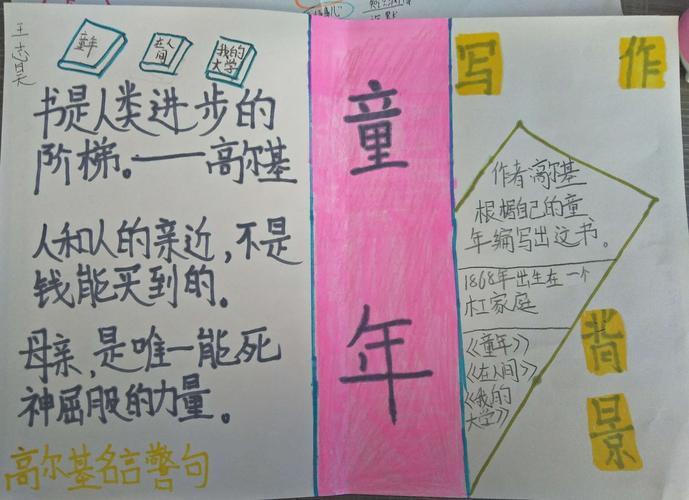 王志昊
童年
在人
间
我的
大学
书是人类进步的
阶梯。——高尔基
人和人的亲近,不是
钱能买到的。
母亲,是唯一能死
神屈服的力量。
高尔基名言警句
童年
写作
作者高尔基
根据自己的童
年编写出这书。
1868年出生在一个
木工家庭
《童年》
《在人间》
《我的
大学》
背景